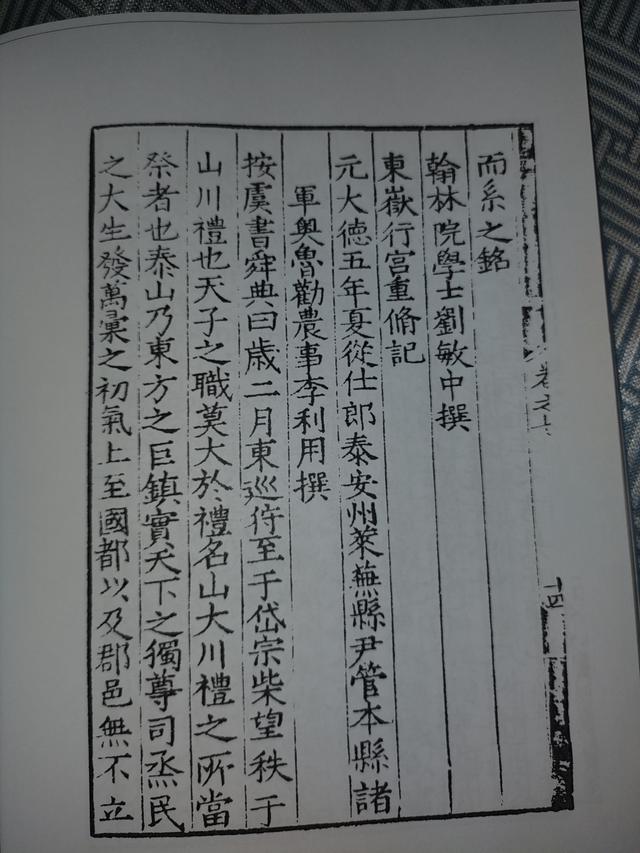 而系之銘
翰林院學士劉敏中撰
東嶽行宮重脩記
元大德五年夏從仕郎泰安州萊蕪縣尹管本縣諸
軍奧魯勸農事李利用撰
按虞書舜典曰歲二月東巡狩至于岱宗柴望秩于
山川禮也天子之職莫大於禮名山大川禮之所當
祭者也泰山乃東方之巨鎮實天下之獨尊司烝民
之大生發萬彚之初氣上至國都以及郡邑無不立
卷之
十四